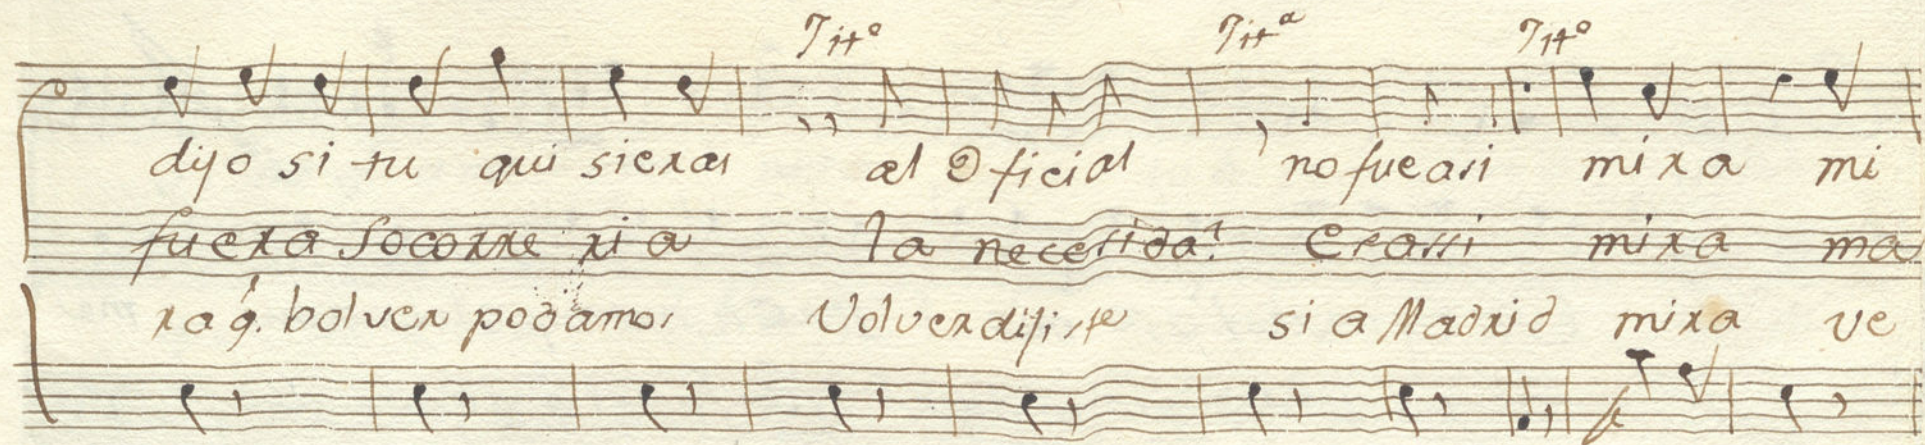 Jitº Jitª Jitº
dijo si tu qui sieras al Oficial no fue asi mira mi
fuera socorre ria la necesida? Erassi mira ma
ra q. bolver podamos Volver dijiste si a Madrid mira ve
p